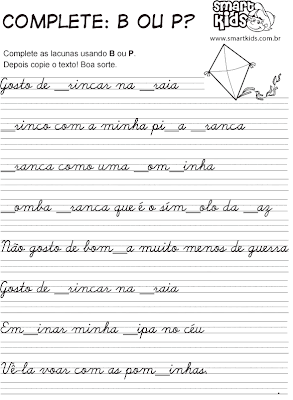 COMPLETE: B OU P?
Smart Kids
www.smartkids.com.br
Complete as lacunas usando B ou P.
Depois copie o texto! Boa sorte.
Gosto de __rincar na __raia
__rinco com a minha pi__a __ranca
__ranca como uma __om__inha
__omba __ranca que é o sím__olo da __az
Não gosto de bom__a muito menos de guerra
Gosto de __rincar na __raia
Em__inar minha __ipa no céu
Vê-la voar com as pom__inhas.